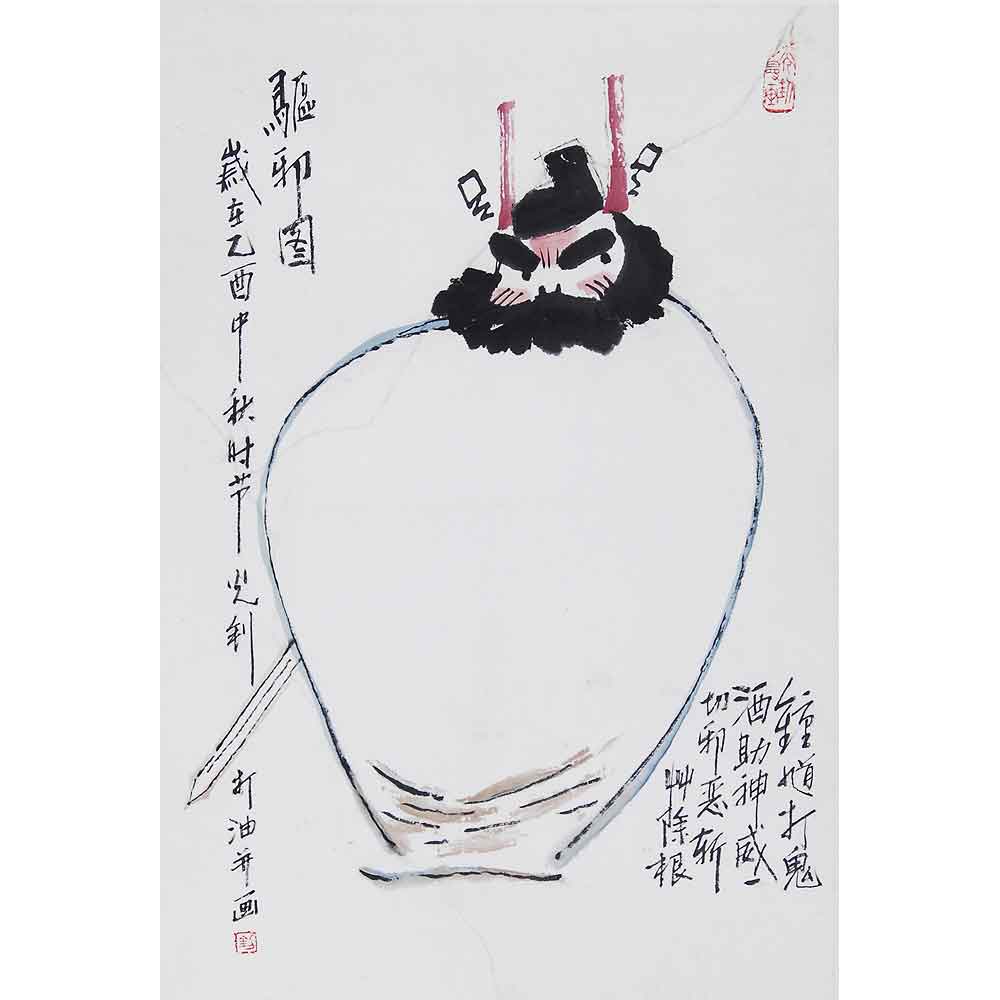 驅邪图
歲在乙酉中秋时节
打油并画
鍾馗打鬼
酒助神威一
切邪恶斩
艸除根